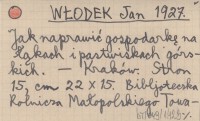 WŁODEK Jan 1927.
Jak naprawić gospodarkę na
łąkach i pastwiskach górs-
kich. — Kraków. Stron
15, cm 22 x 15. Bibljoteczka
Rolnicza Małopolskiego Towa-